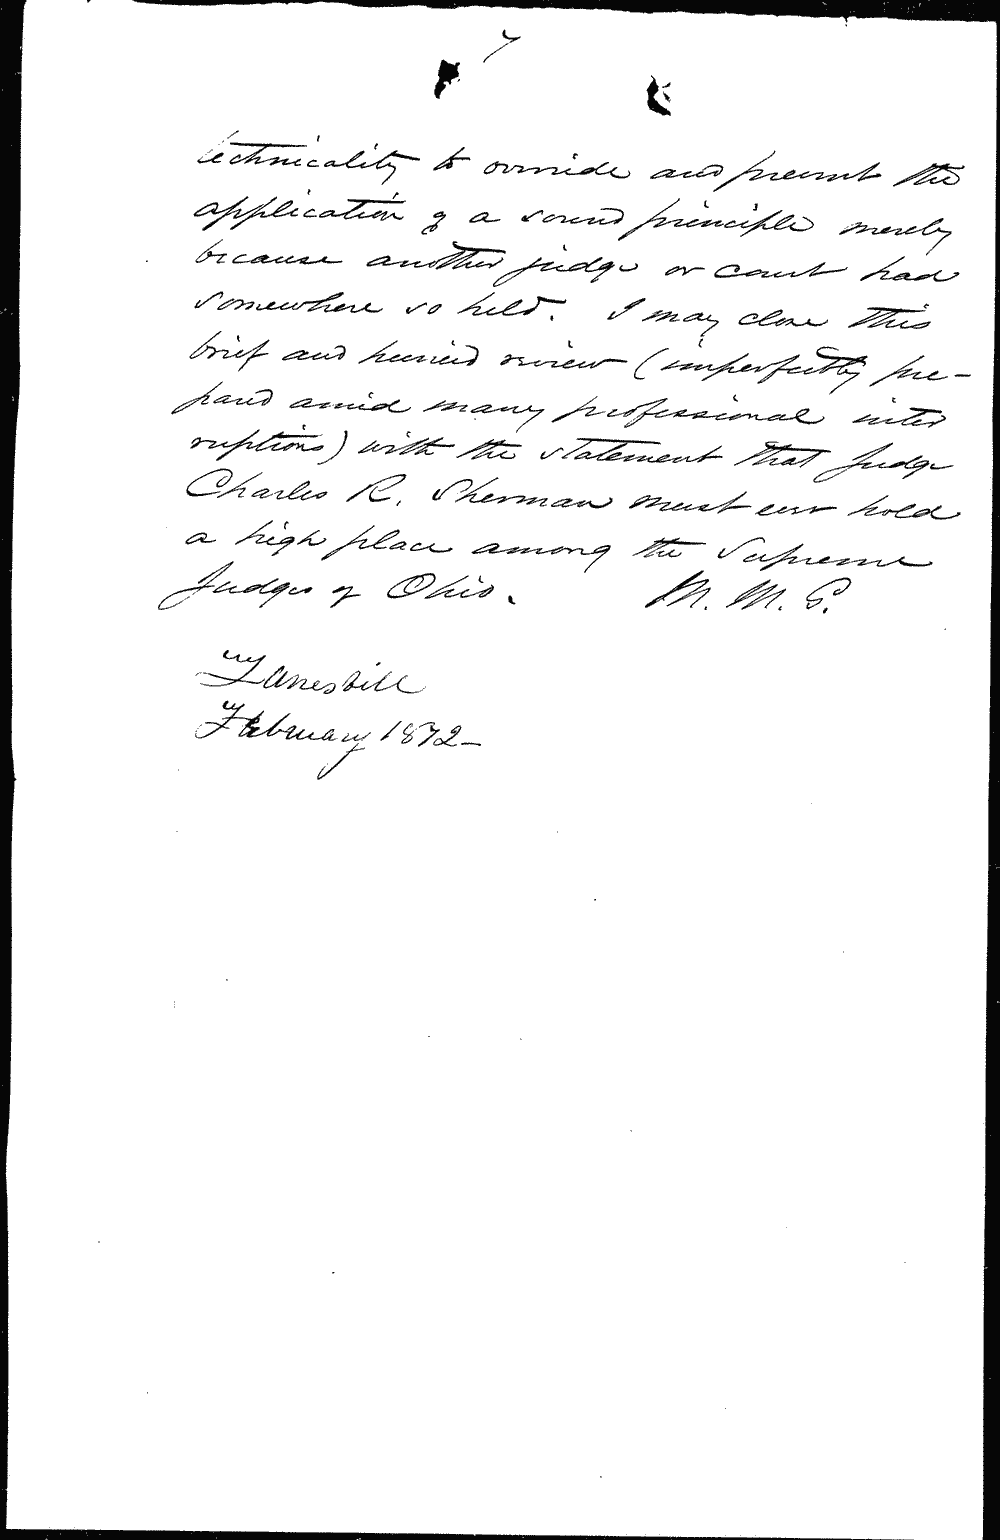 7
technicality to override and prevent the
application of a sound principle merely
because another judge or court had
somewhere so held. I may close this
brief and hurried review (imperfectly pre-
pared amid many professional inter
ruptions) with the statement that Judge
Charles R. Sherman must ever hold
a high place among the Supreme
Judges of Ohio. M. M. G.
Zanesvill
February 1872-